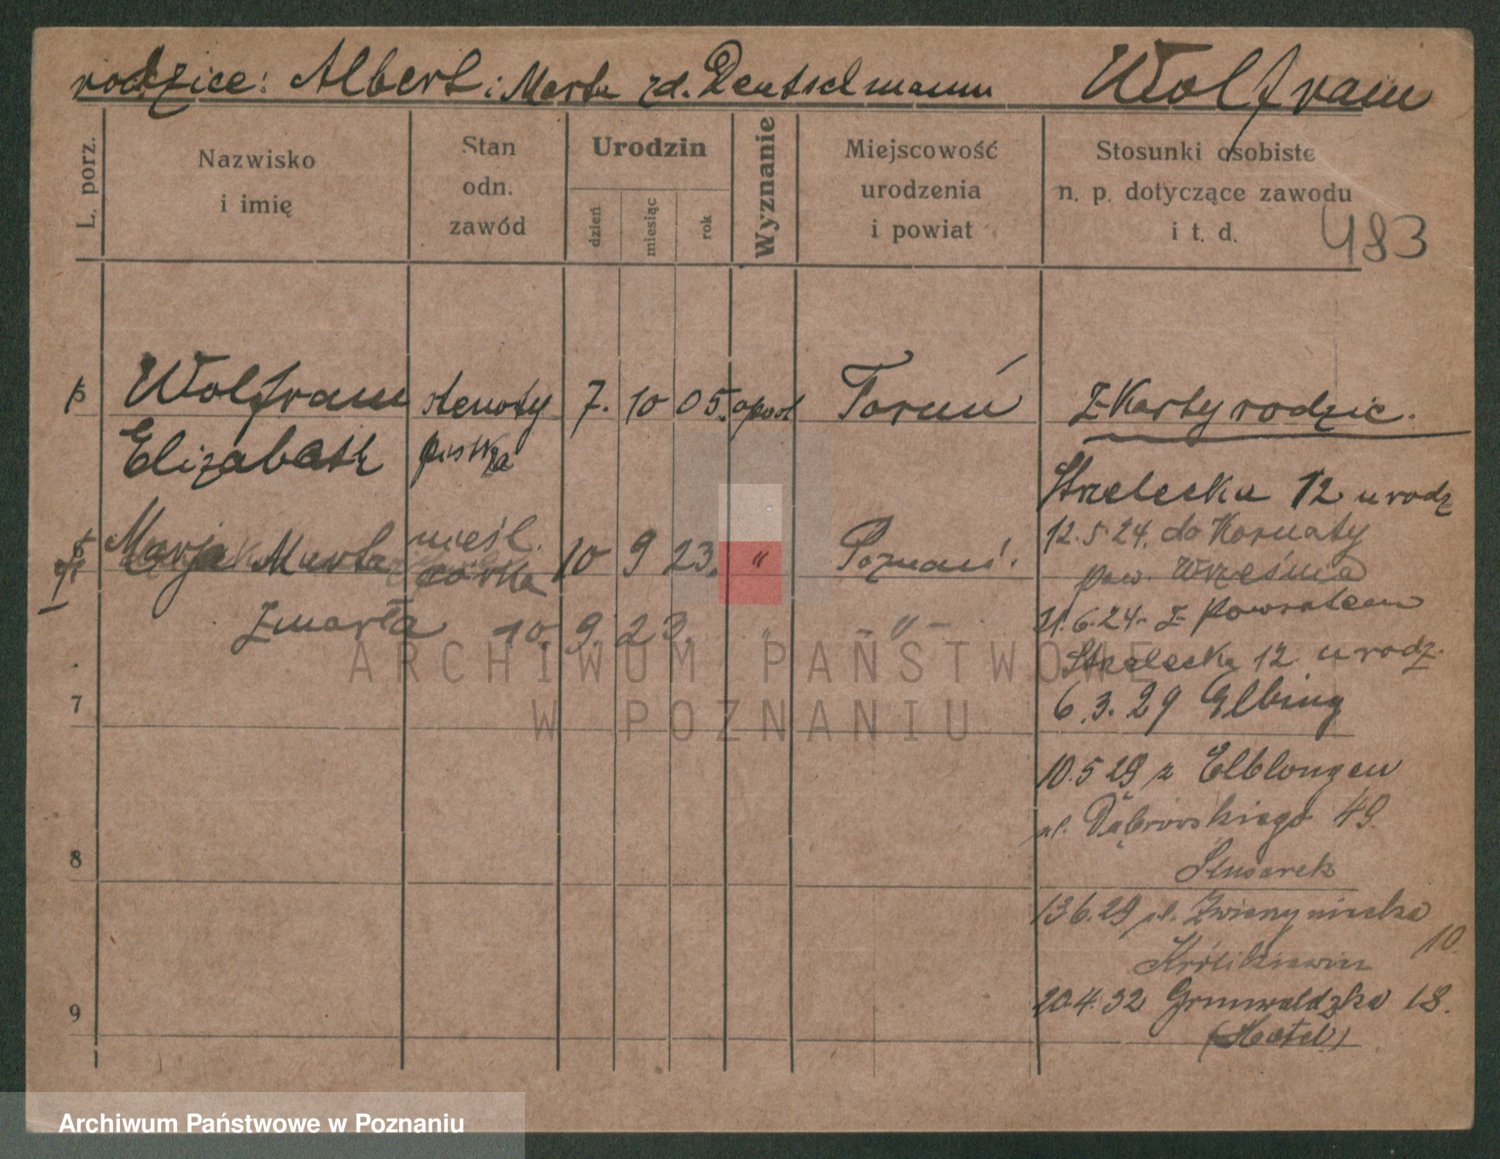 rodzice: Albert i Marta zd. Deutschmann Wolfram
L. porz.
Nazwisko
i imię
Stan
odn.
zawód
Urodzin
dzień
miesiąc
rok
Wyznanie
Miejscowość
urodzenia
i powiat
Stosunki osobiste
n. p. dotyczące zawodu
i t. d.
483
Wolfram stenoty 7. 10 05. Toruń
Elizabeth pistka
Z Karty rodzic.
Strzelecka 12 u rodz
Marja Marta nieśl. 10 9 23. " Poznań.
córka
12.5.24. do
pow. Września
Zmarła 10. 9. 23. " - " -
21.6.24 z powrotem
Strzelecka 12 u rodz.
6.3.29 Elbing
7
10.5 29 z
ul. Dąbrowskiego 49.
8
Ślusarek
13 6.29 ul. Zwierzyniecka
10.
Królikiewicz
20.4.32 Grunwaldzka 18.
(Hotel)
9
ARCHIWUM PAŃSTWOWE
W POZNANIU
Archiwum Państwowe w Poznaniu